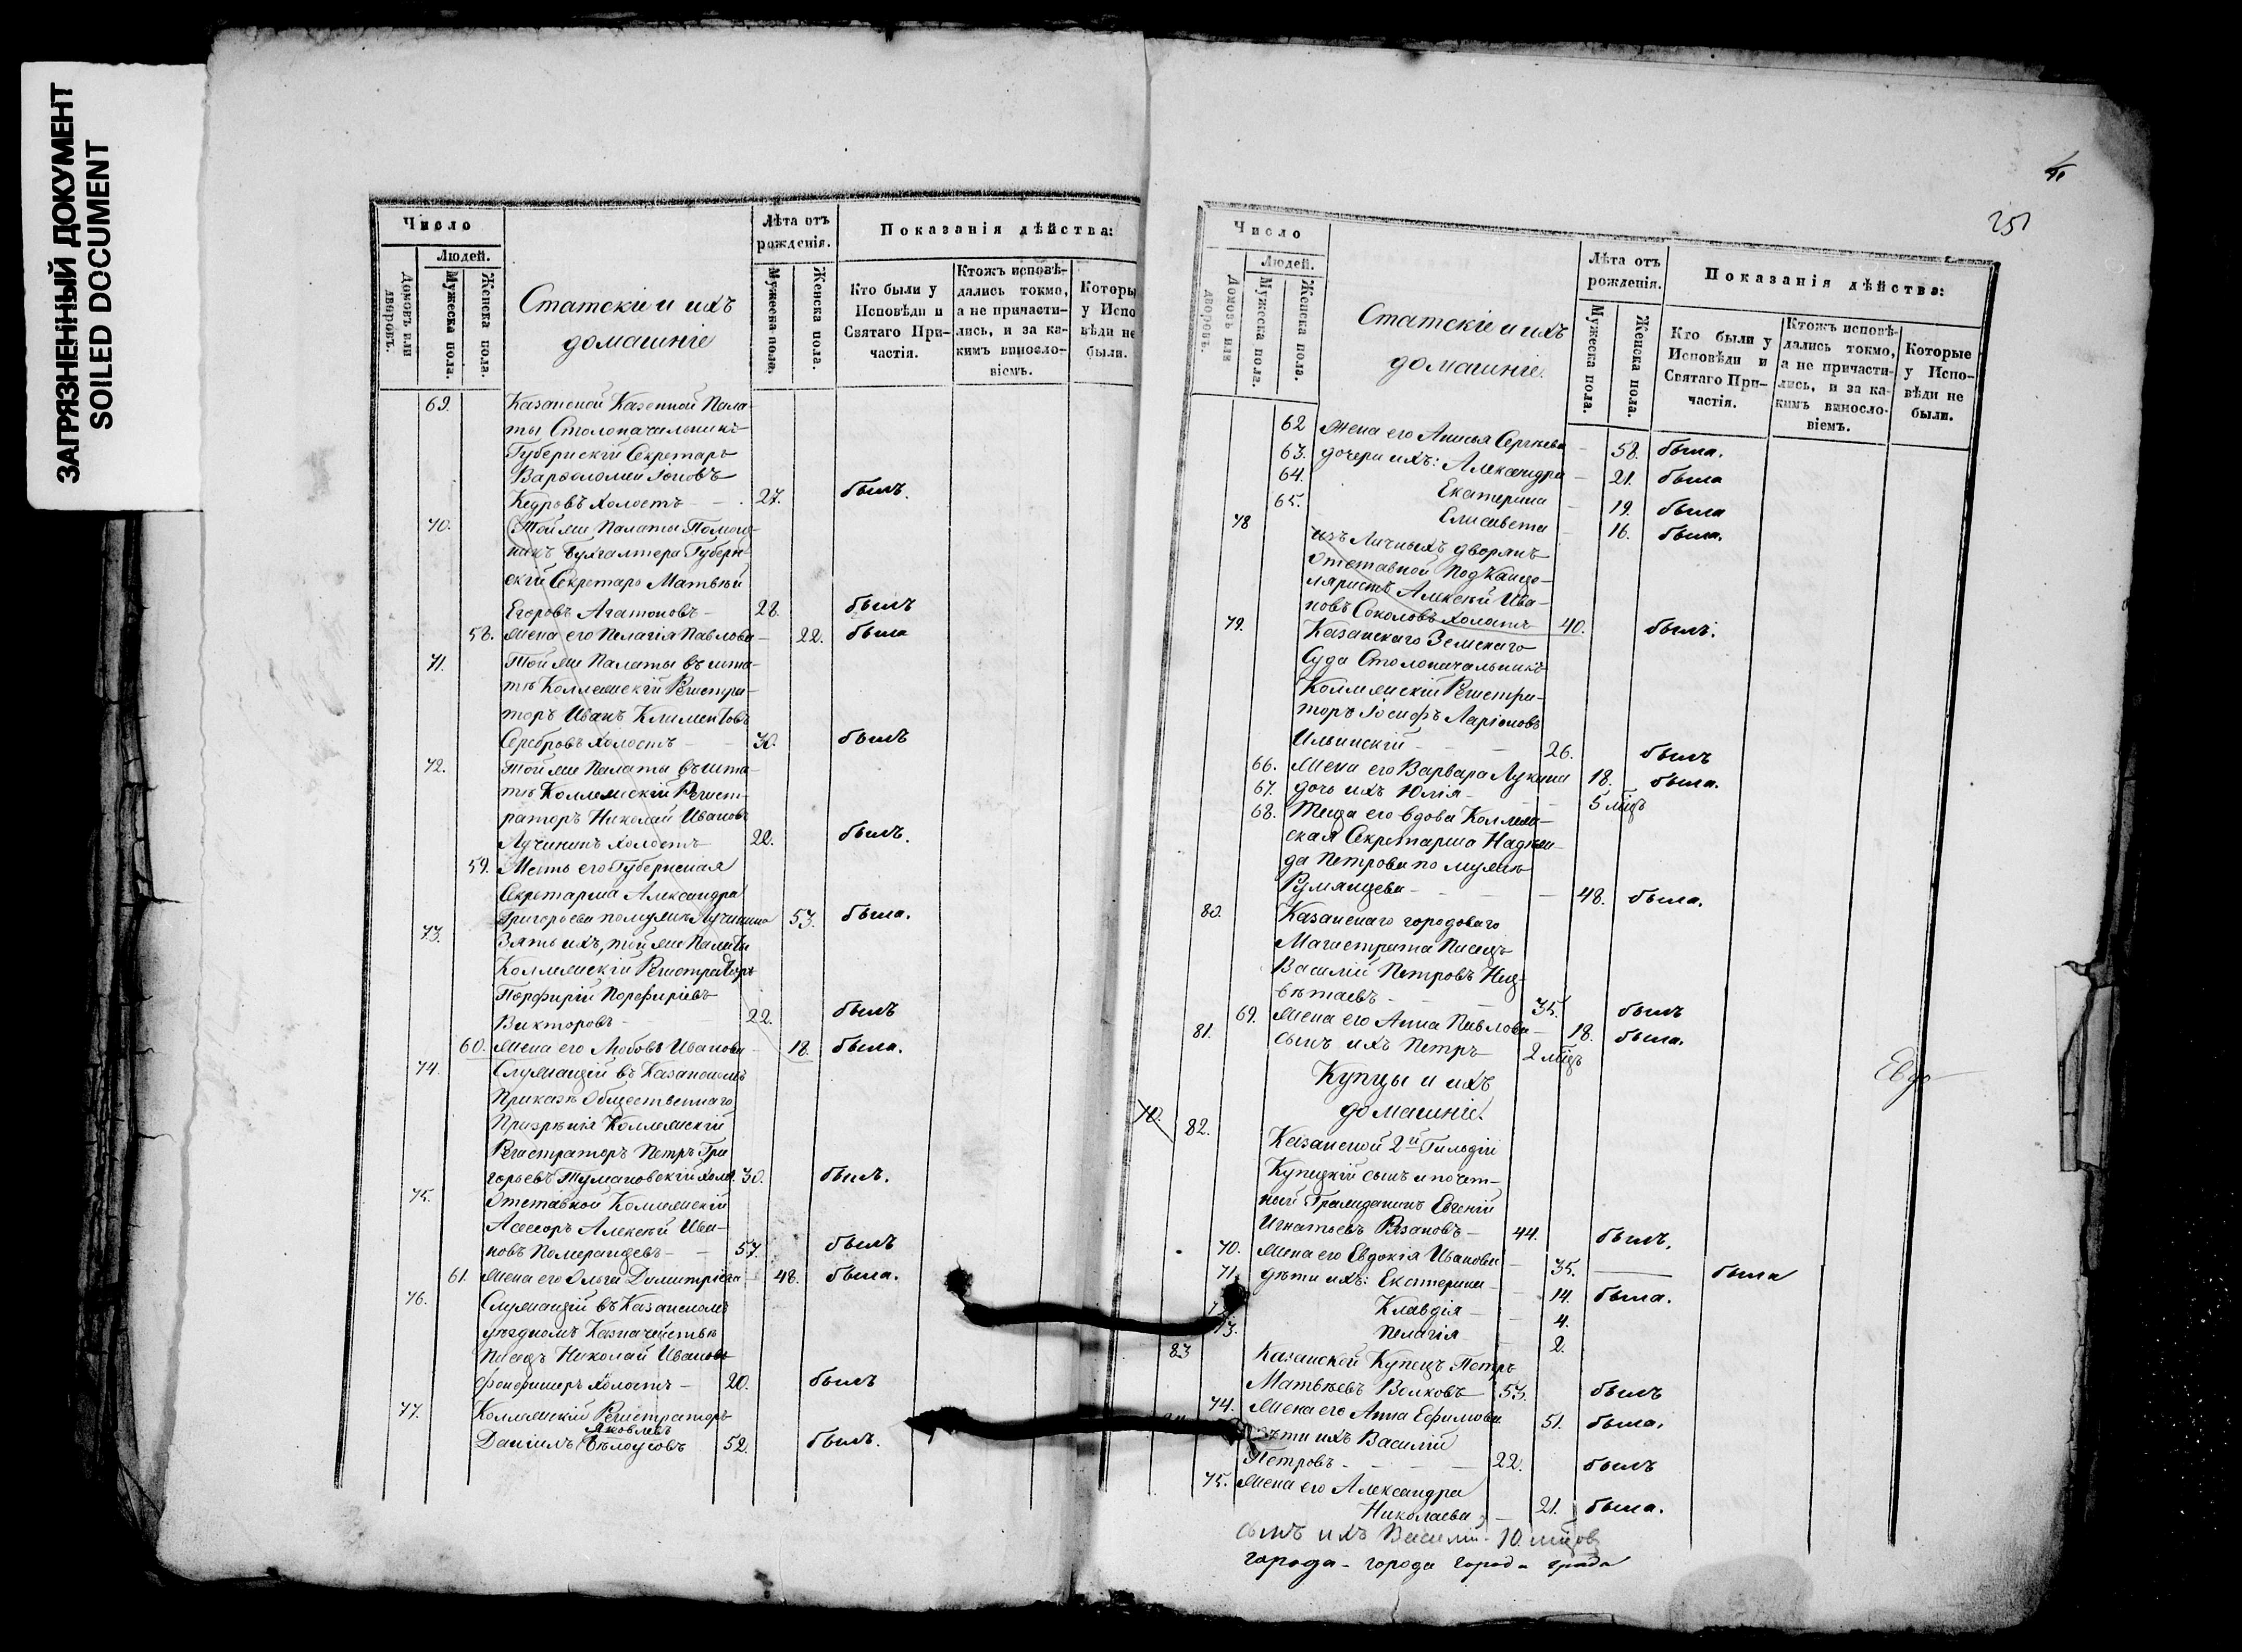 ЗАГРЯЗНЕННЫЙ ДОКУМЕНТ
SOILED DOCUMENT
Число
Людей.
Домовъ или дворовъ.
Мужеска пола.
Женска пола.
Статскіе и ихъ
домашніе
Лѣта отъ рожденія.
Мужеска пола.
Женска пола.
Показанія дѣйства:
Кто были у Исповѣди и Святаго При-частія.
Ктожъ исповѣ-дались токмо, а не причасти-лись, и за ка-кимъ винословіемъ.
Которы у Испо вѣди не были.
69. Казанской Казенной Пала-
ты Столоначальникъ
Губернскій Секретарь
Варфоломей Іоновъ
Кедровъ холостъ - 27. былъ.
70. Той же Палаты Помощ-
никъ Бухгалтера Губерн-
скій Секретарь Матвѣй
Егоровъ Агатоновъ - 28. былъ
58. Жена его Пелагія Павлова - 22. была
71. Той же Палаты въ шта-
тѣ Коллежскій Регистра-
торъ Иванъ Климентовъ
Серебровъ холостъ - 30. былъ
72. Той же Палаты въ шта-
тѣ Коллежскій Регист-
раторъ Николай Ивановъ
Лучининъ холостъ 22. былъ.
59. Мать его Губернская
Секретарша Александра
Григорьева по мужѣ Лучинина 53. была.
73. Зять ихъ, той же Палаты
Коллежскій Регистраторъ
Порфирій Порфиріевъ
Викторовъ - 22. былъ
60. Жена его Любовь Иванова - 18. была.
74. Служащій въ Казанскомъ
Приказѣ Общественнаго
Призрѣнія Коллежскій
Регистраторъ Петръ Гри
горьевъ Тумановскій холо. 30. былъ.
75. Отставной Коллежскій
Асессоръ Алексѣй Ива-
новъ Померанцевъ - 57. былъ
61. Жена его Ольга Димитріева - 48. была.
76. Служащій въ Казанскомъ
уѣздномъ Казначействѣ
Писецъ Николай Ивановъ
холостъ - 20. былъ
77. Коллежскій Регистраторъ
Яковлевъ
Даніилъ Бѣлоусовъ 52. былъ.
251
Число
Людей.
Домовъ или дворовъ.
Мужеска пола.
Женска пола.
Статскіе и ихъ
домашніе.
Лѣта отъ рожденія.
Мужеска пола.
Женска пола.
Показанія дѣйства:
Кто были у Исповѣди и Святаго При-частія.
Ктожъ исповѣ-дались токмо, а не причасти-лись, и за ка-кимъ винословіемъ.
Которые у Испо-вѣди не были.
62 Жена его Анисья Сергѣева - 58. была.
63. дочери ихъ: Александра - 21. была
64. Екатерина - 19. была
65. Елисавета - 16. была.
78 изъ Личныхъ дворянъ
Отставной Подканце-
ляристъ Алексѣй Ива-
новъ Соколовъ холостъ 40. былъ.
79. Казанскаго Земскаго
Суда Столоначальникъ
Коллежскій Регистра-
торъ Іосифъ Ларіоновъ
Ильинскій - 26. былъ
66. Жена его Варвара Лукина 18. была.
67. дочь ихъ Юлія - 5 мѣсц
68. Теща его вдова Коллеж-
ская Секретарша Надеж-
да Петрова по мужѣ
Румянцева - 48. была.
80. Казанскаго городоваго
Магистрата Писецъ
Василій Петровъ Нец-
вѣтаевъ - 35. былъ
69. Жена его Анна Павлова - 18. была.
81. сынъ ихъ Петръ 2 мѣсц
Купцы и ихъ
домашніе.
82. Казанской 2й Гильдіи
Купецкій сынъ и почет-
ный Гражданинъ Евгеній
Игнатьевъ Рязановъ - 44. былъ.
70. Жена его Евдокія Иванова - 35. — была
71. дѣти ихъ: Екатерина - 14. была.
Клавдія - 4.
73. Пелагія - 2.
83 Казанской Купецъ Петръ
Матвѣевъ Волковъ 53. былъ
74. Жена его Анна Ефимова 51. была.
дѣти ихъ Василій
Петровъ - 22. былъ
75. Жена его Александра
Николаева - 21. была.
сынъ ихъ Василій - 10 мѣсцов
города - города город а града